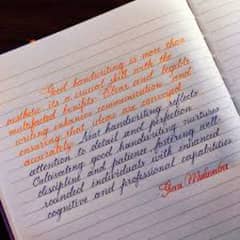 Good handwriting is more than
aesthetic its a crucial skill with the
multifaceted benefits. Clear and legible
writing enhances communication and
ensuring that ideas are conveyed
accurately. Neat handwriting reflects
attention to detail and perfection.
Cultivating good handwriting nurtures
discipline and patience, fostering well-
rounded individuals with enhanced
cognitive and professional capabilities.